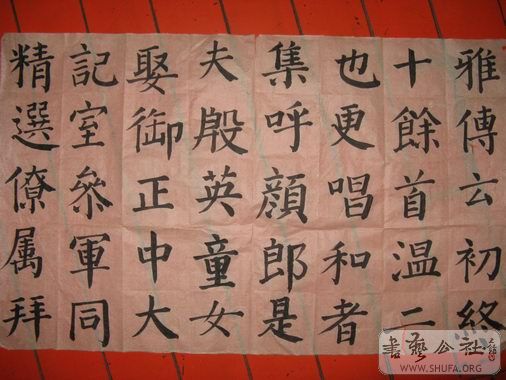 雅傳云初
十餘首温二
也更唱和者
集呼顔郎是
夫殷英童女
娶御正中大
記室叅軍同
精選僚属拜
書藝公社
WWW.SHUFA.ORG